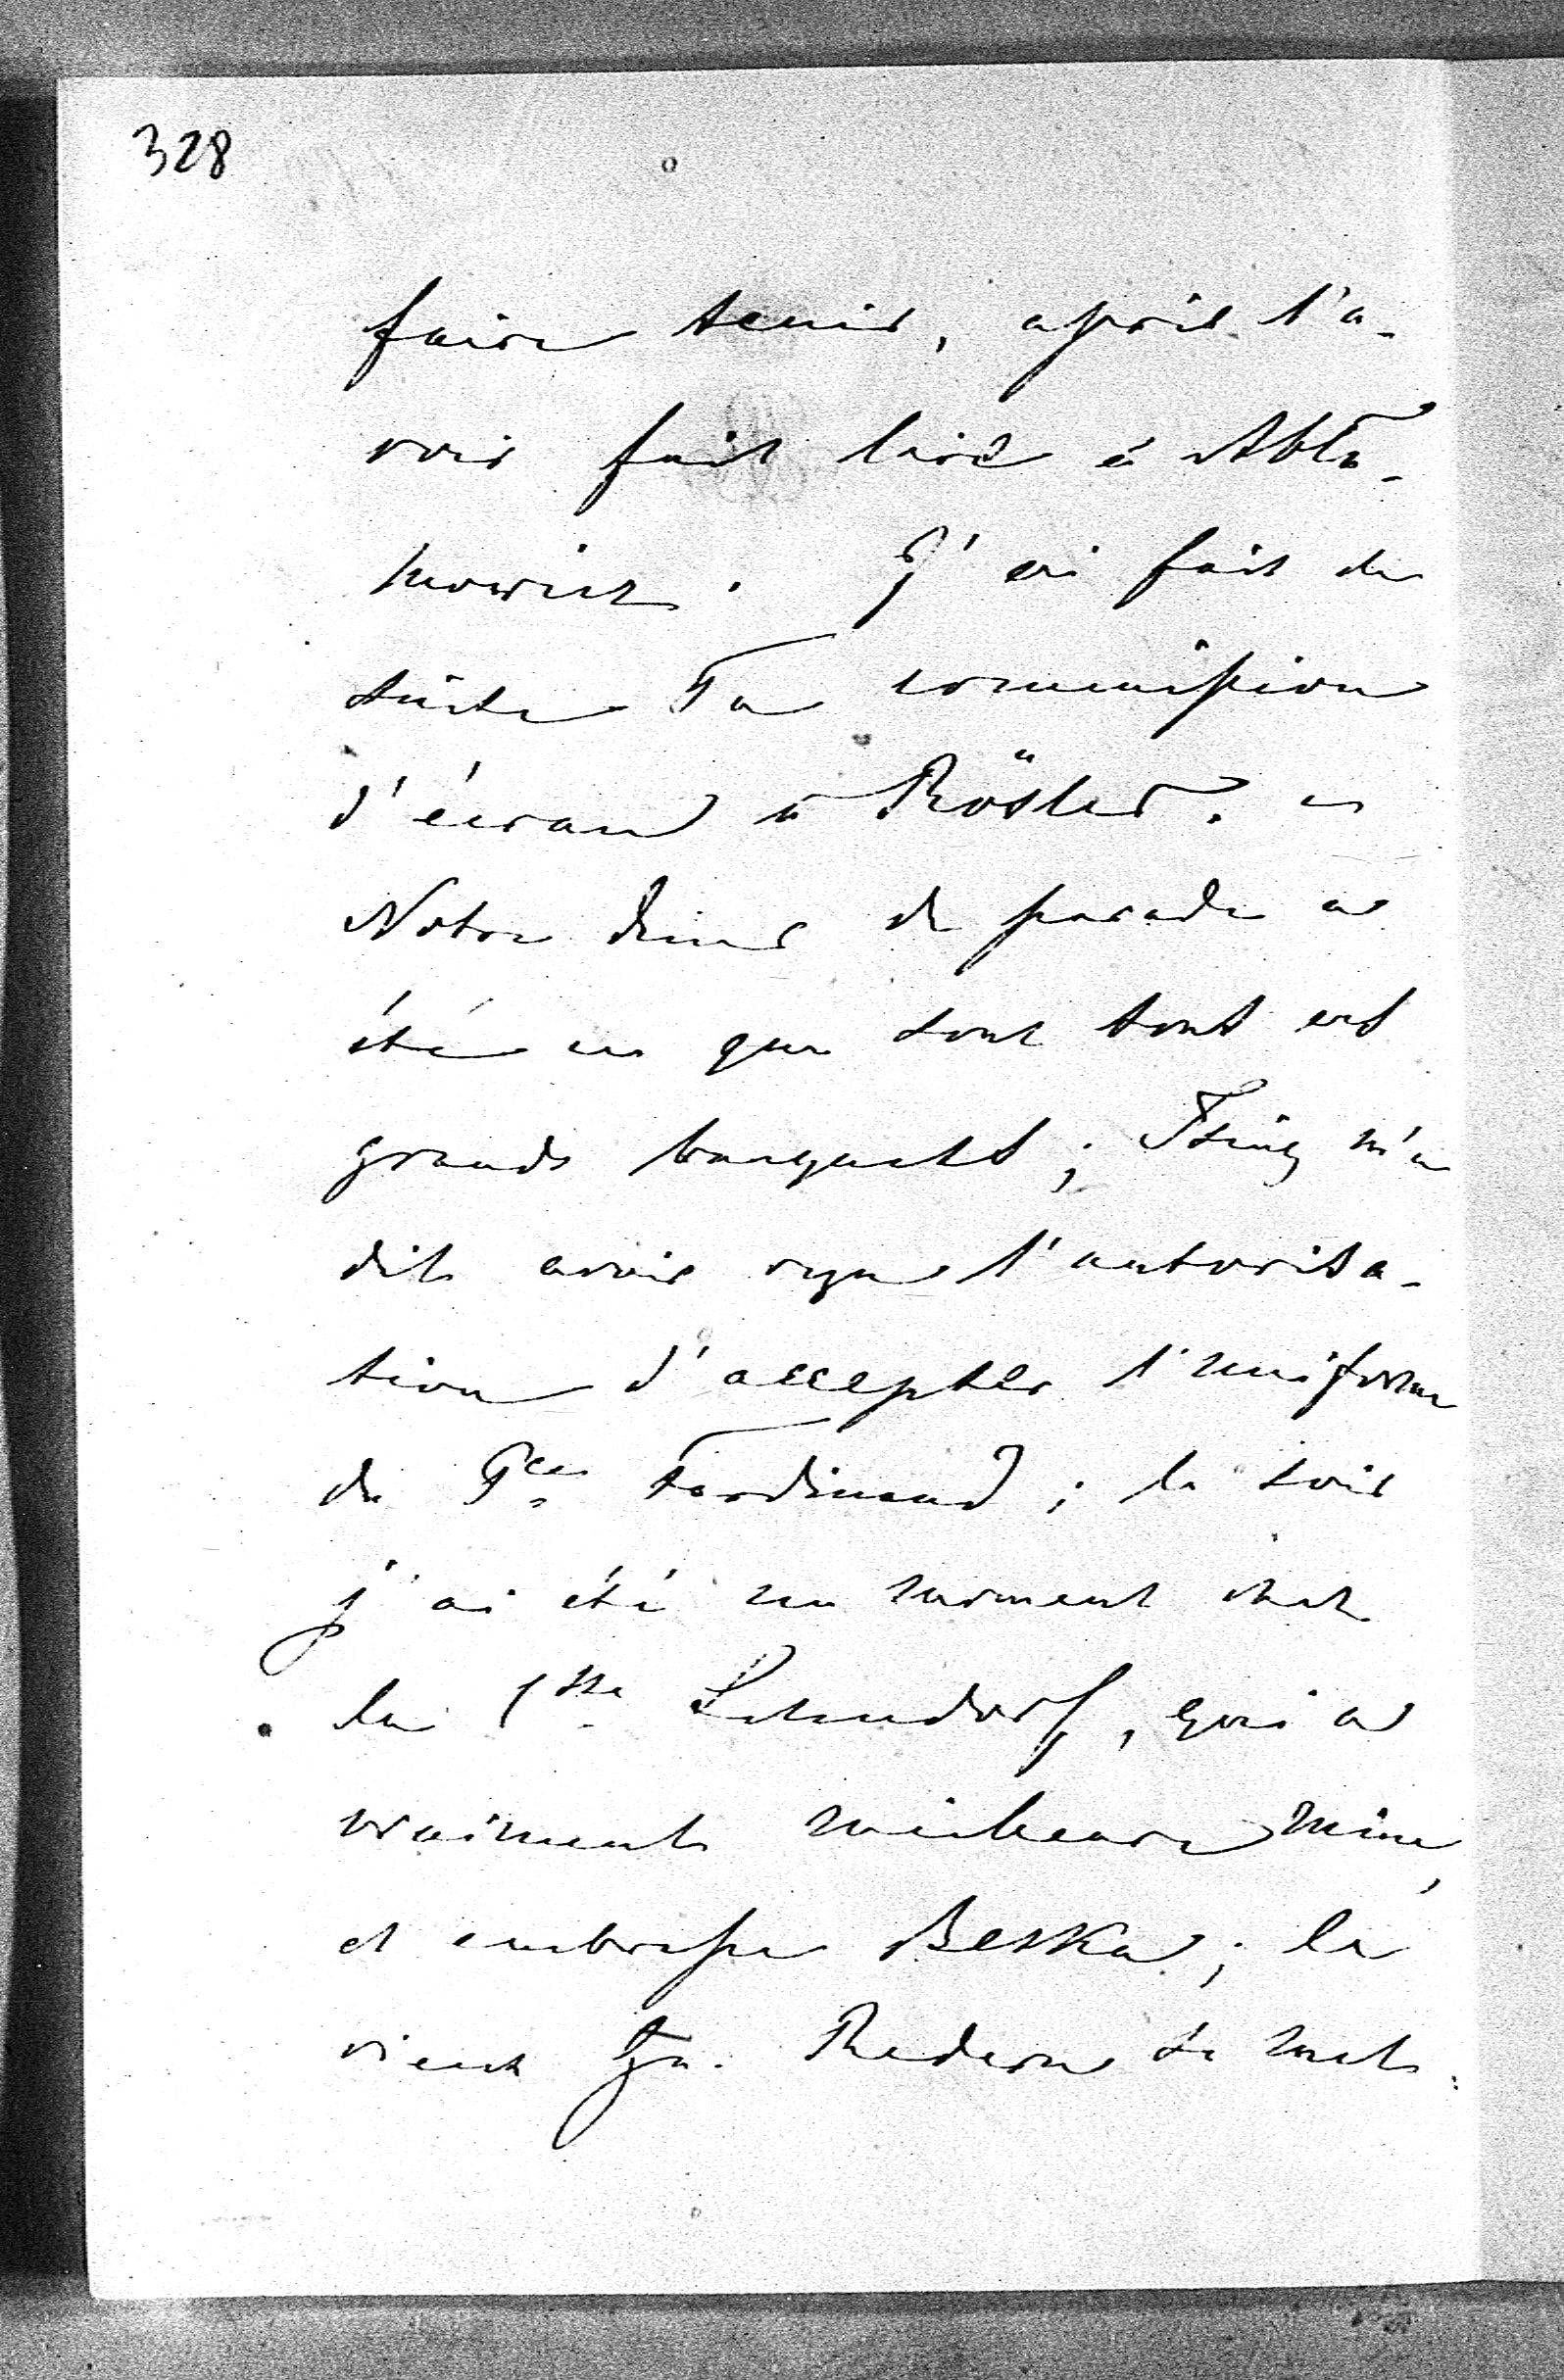 328
faire tenir, après l'a-
voir fait lire à Abla-
mowicz. J'ai fait de
suite Ta commission
d'écran à Rösler.
Notre diner de parade a
été ce que sont tout les
grands banquets; m'a
dit avoir reçu l'autorisa-
tion d'accepter l'uniforme
de Pce Ferdinand; le soir
j'ai été un moment chez
la Csse Lehndorf, qui a
vraiment meilleure mine,
et embrasse Beska; le
vieux Gn. Redern se met